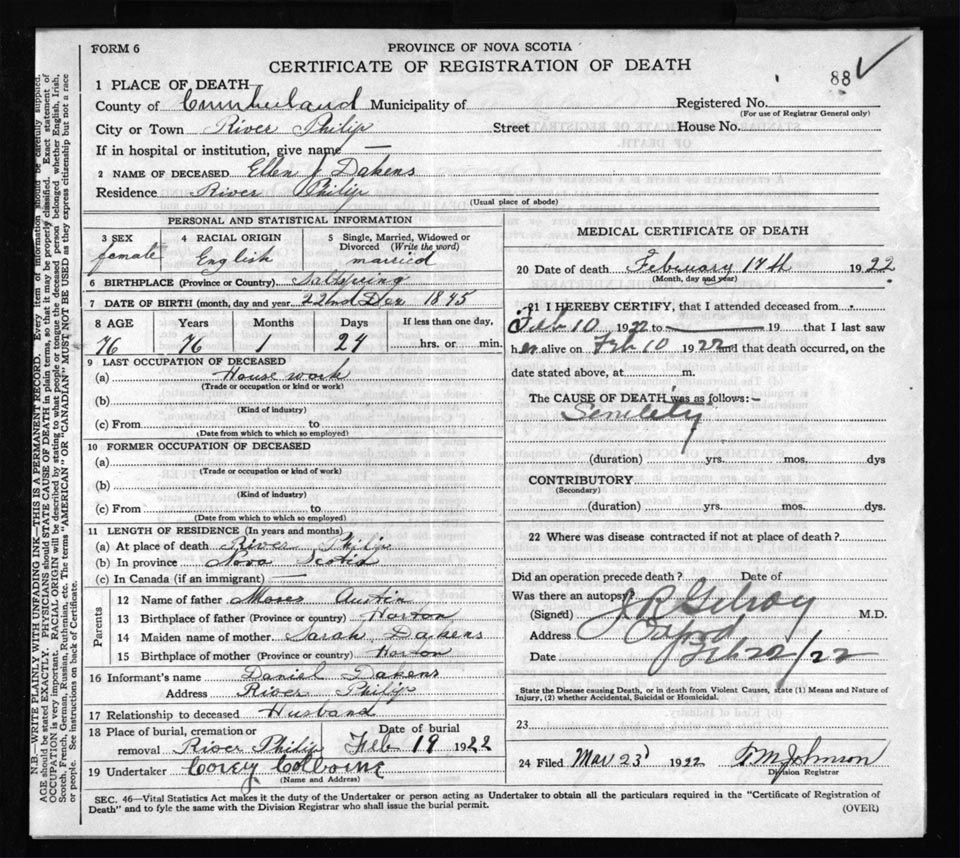 FORM 6
PROVINCE OF NOVA SCOTIA
CERTIFICATE OF REGISTRATION OF DEATH
88
1 PLACE OF DEATH
County of Cumberland Municipality of
Registered No.
(For use of Registrar General only)
City or Town River Philip Street House No.
If in hospital or institution, give name —
2 NAME OF DECEASED Ellen J Dakens
Residence River Philip
(Usual place of abode)
PERSONAL AND STATISTICAL INFORMATION
3 SEX
female
4 RACIAL ORIGIN
English
5 Single, Married, Widowed or Divorced (Write the word)
married
6 BIRTHPLACE (Province or Country) Saltspring
7 DATE OF BIRTH (month, day and year) 22nd Dec 1845
8 AGE Years Months Days If less than one day,
76 76 1 24 hrs. or min.
9 LAST OCCUPATION OF DECEASED
(a) House work
(Trade or occupation or kind or work)
(b)
(Kind of industry)
(c) From to
(Date from which to which so employed)
10 FORMER OCCUPATION OF DECEASED
(a)
(Trade or occupation or kind of work)
(b)
(Kind of industry)
(c) From to
(Date from which to which so employed)
11 LENGTH OF RESIDENCE (In years and months)
(a) At place of death River Philip
(b) In province Nova Scotia
(c) In Canada (if an immigrant) —
Parents
12 Name of father Moses Austin
13 Birthplace of father (Province or country) Horton
14 Maiden name of mother Sarah Dakens
15 Birthplace of mother (Province or country) Horton
16 Informant's name Daniel Dakens
Address River Philip
17 Relationship to deceased Husband
18 Place of burial, cremation or removal River Philip
Date of burial
Feb 19 1922
19 Undertaker Corey Colborne
(Name and Address)
MEDICAL CERTIFICATE OF DEATH
20 Date of death February 17th 1922
(Month, day and year)
21 I HEREBY CERTIFY, that I attended deceased from
Feb 10 1922 to — 19 that I last saw
her alive on Feb 10 1922 and that death occurred, on the
date stated above, at m.
The CAUSE OF DEATH was as follows:—
Senility
(duration) yrs. mos. dys
CONTRIBUTORY
(Secondary)
(duration) yrs. mos. dys
22 Where was disease contracted if not at place of death?
Did an operation precede death? Date of
Was there an autopsy
(Signed) J R Gilroy M.D.
Address Oxford
Date Feb 22/22
State the Disease causing Death, or in death from Violent Causes, state (1) Means and Nature of
Injury, (2) whether Accidental, Suicidal or Homicidal.
23
24 Filed Mar 23 1922 Johnson
Division Registrar
SEC. 46—Vital Statistics Act makes it the duty of the Undertaker or person acting as Undertaker to obtain all the particulars required in the "Certificate of Registration of
Death" and to fyle the same with the Division Registrar who shall issue the burial permit.
(OVER)
N.B.—WRITE PLAINLY WITH UNFADING INK—THIS IS A PERMANENT RECORD. Every item of information should be carefully supplied.
AGE should be stated EXACTLY. PHYSICIANS should STATE CAUSE OF DEATH in plain terms, so that it may be properly classified. Exact statement of
OCCUPATION is very important. RACIAL ORIGIN will be described by stating to what people or tongue the deceased person belonged whether English, Irish,
Scotch, French, German, Russian, Ruthenian, etc. The terms "AMERICAN" OR "CANADIAN" MUST NOT BE USED as they express citizenship but not a race
or people. See instructions on back of Certificate.